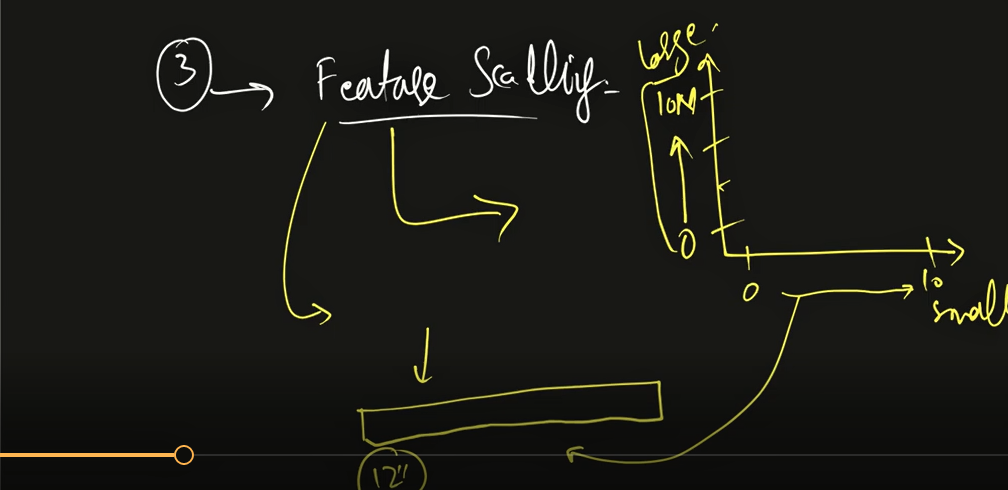 3 → Feature Scalling.
large
10M
0
0
10
small
12"